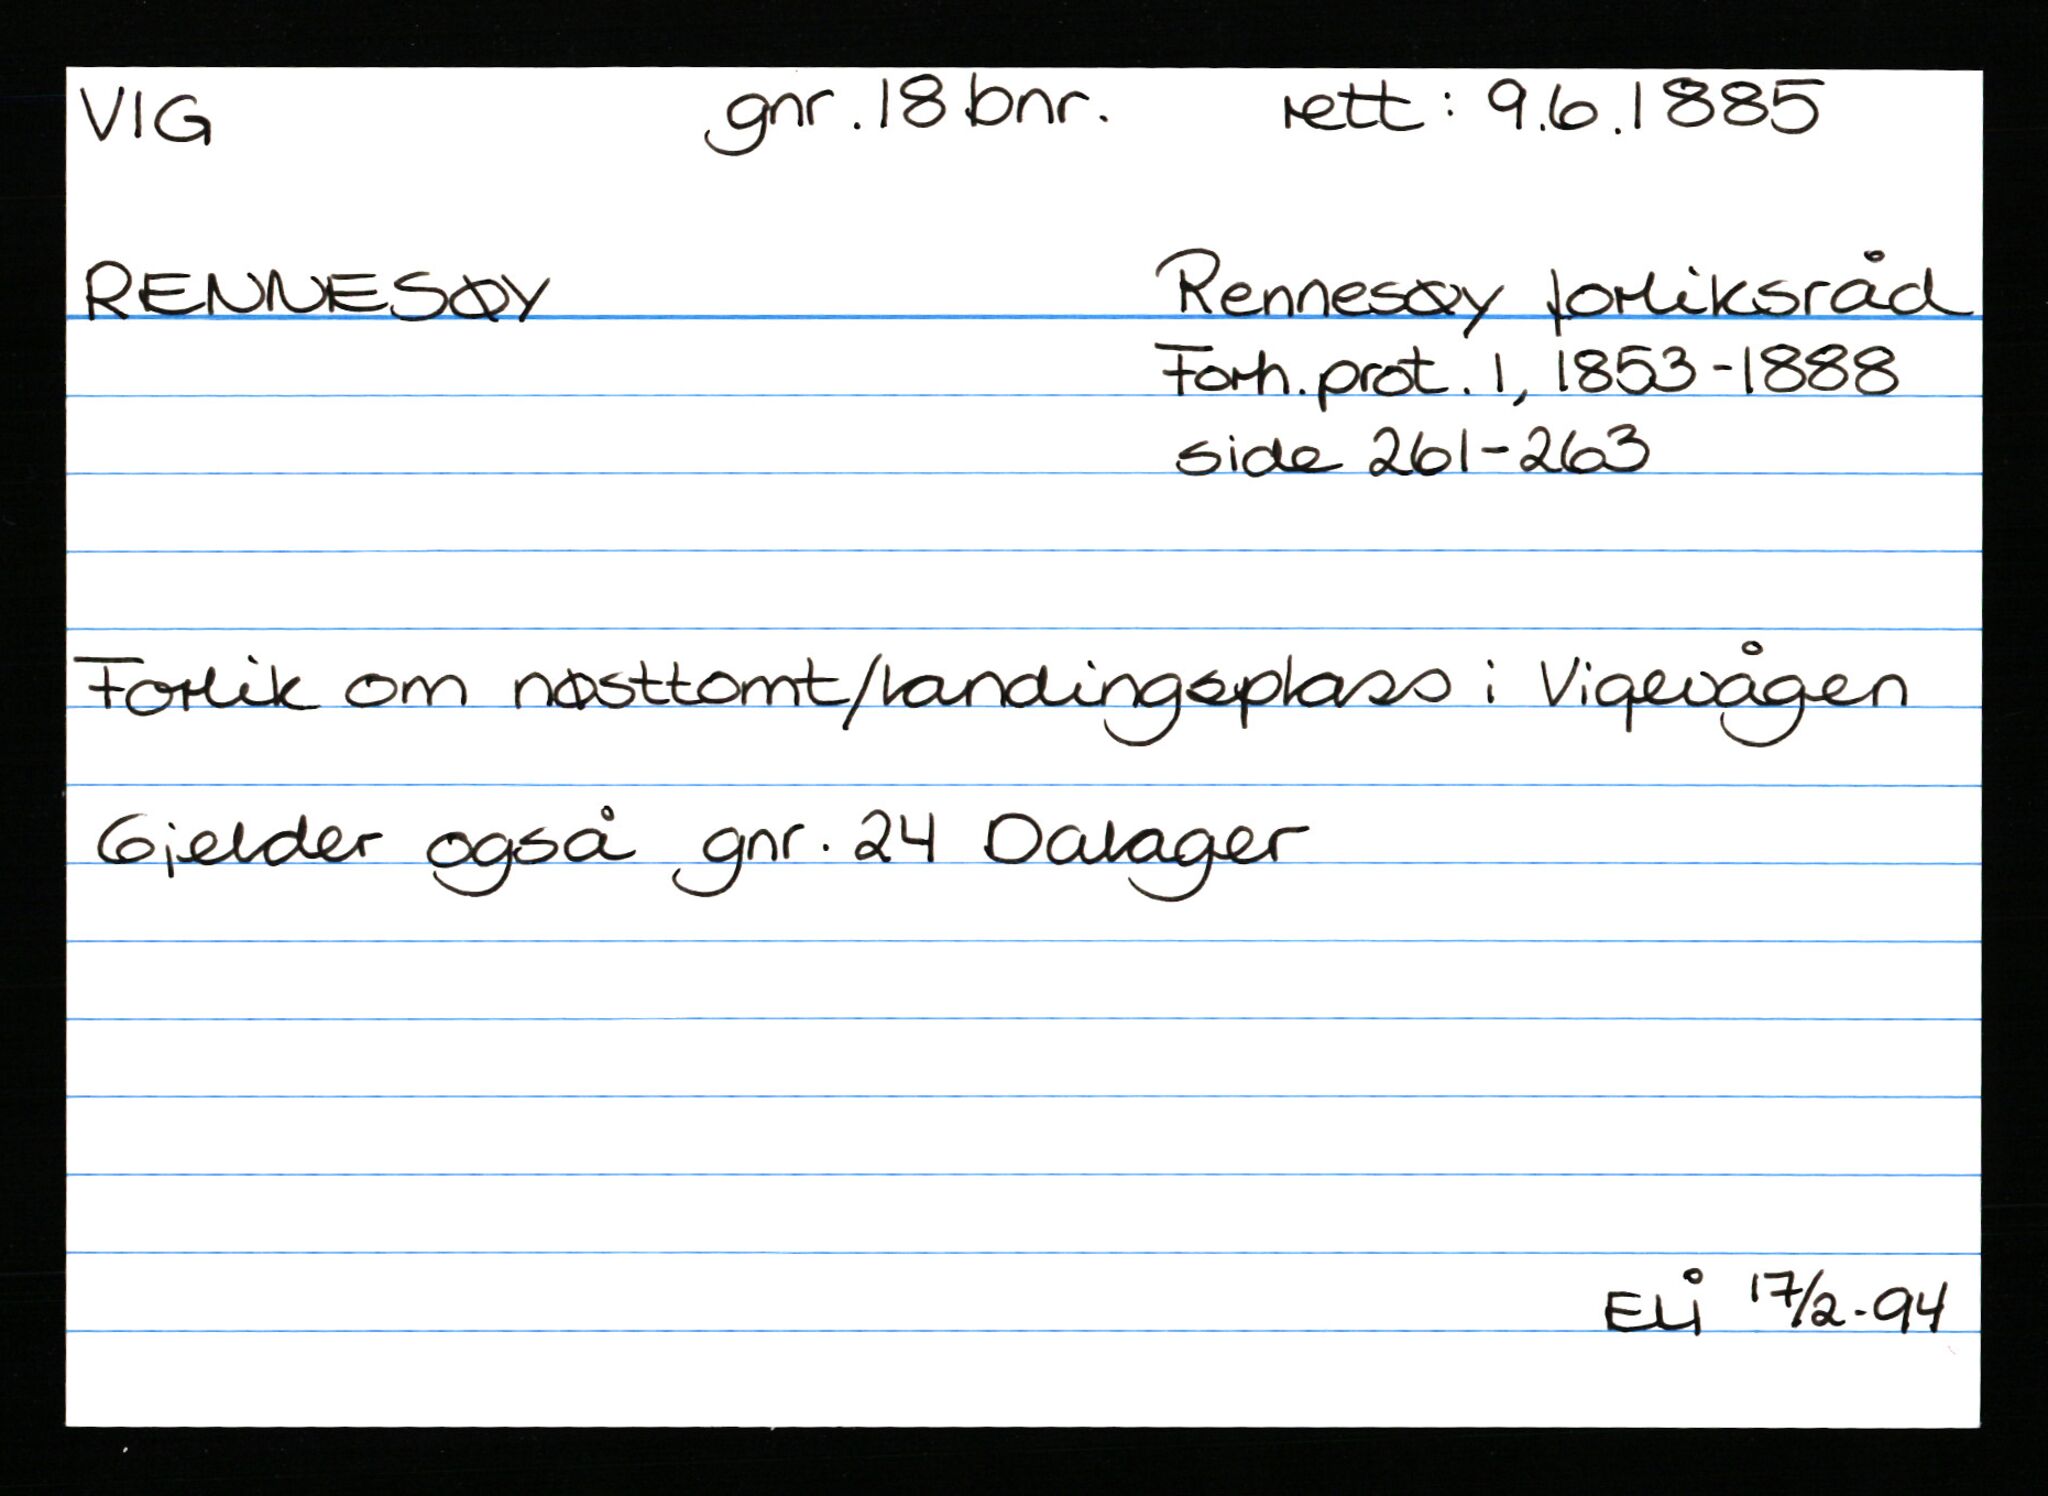 VIG gnr. 18 bnr. rett: 9.6.1885
RENNESØY Rennesøy forliksråd
Forh. prot. 1, 1853-1888
side 261-263
Forlik om nøsttomt/landingsplass i Vigevågen
Gjelder også gnr. 24 Dalager
ELi 17/2-94